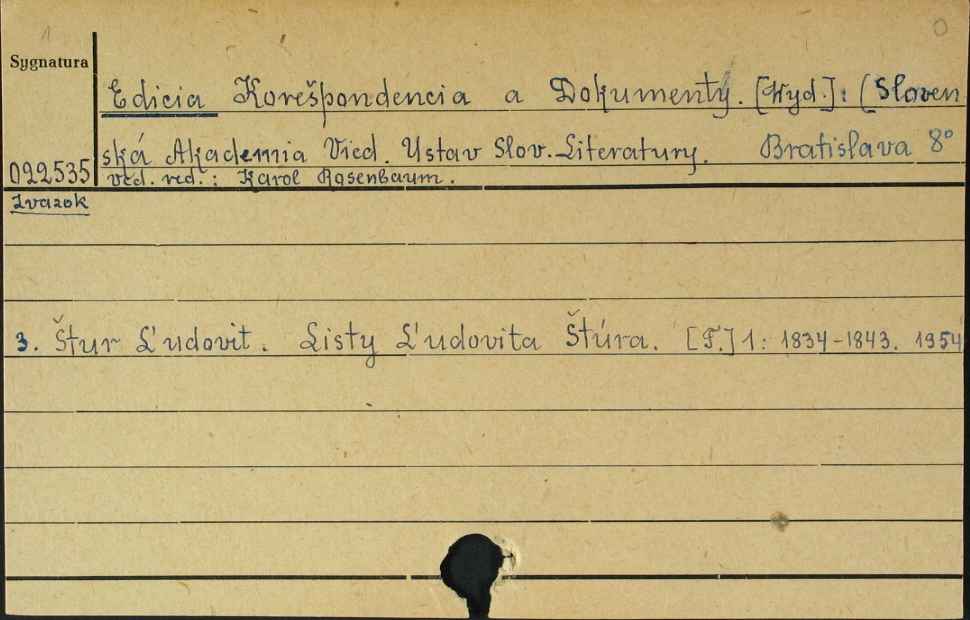 Sygnatura
Edicia Korešpondencia a Dokumenty. [Wyd.]: (Sloven
ská Akademia Vied. Ustav Slov. Literatury. Bratislava 8°
022535
ved. red.: Karol Rosenbaum.
Zvazok
3. Štur Ľudovit. Listy Ľudovita Štúra. [T.] 1: 1834-1843. 1954